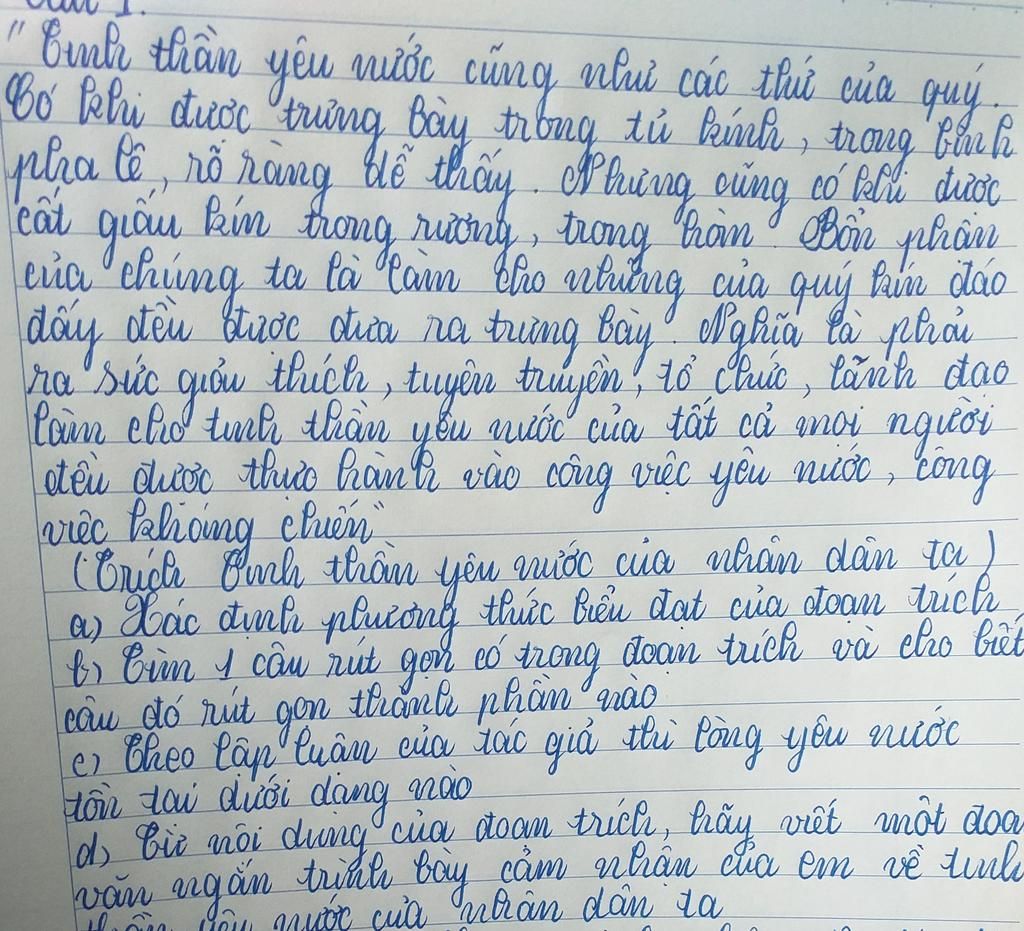 Câu 1.
"Tinh thần yêu nước cũng như các thứ của quý.
Có khi được trưng bày trong tủ kính, trong bình
pha lê, rõ ràng dễ thấy. Nhưng cũng có khi được
cất giấu kín trong rương, trong hòm. Bổn phận
của chúng ta là làm cho những của quý kín đáo
đấy đều được đưa ra trưng bày. Nghĩa là phải
ra sức giải thích, tuyên truyền, tổ chức, lãnh đạo
làm cho tinh thần yêu nước của tất cả mọi người
đều được thực hành vào công việc yêu nước, công
việc kháng chiến"
(Trích Tinh thần yêu nước của nhân dân ta)
a) Xác định phương thức biểu đạt của đoạn trích
b) Tìm 1 câu rút gọn có trong đoạn trích và cho biết
câu đó rút gọn thành phần nào
c) Theo lập luận của tác giả thì lòng yêu nước
tồn tại dưới dạng nào
d) Từ nội dung của đoạn trích, hãy viết một đoạ
văn ngắn trình bày cảm nhận của em về tinh
thần yêu nước của nhân dân ta